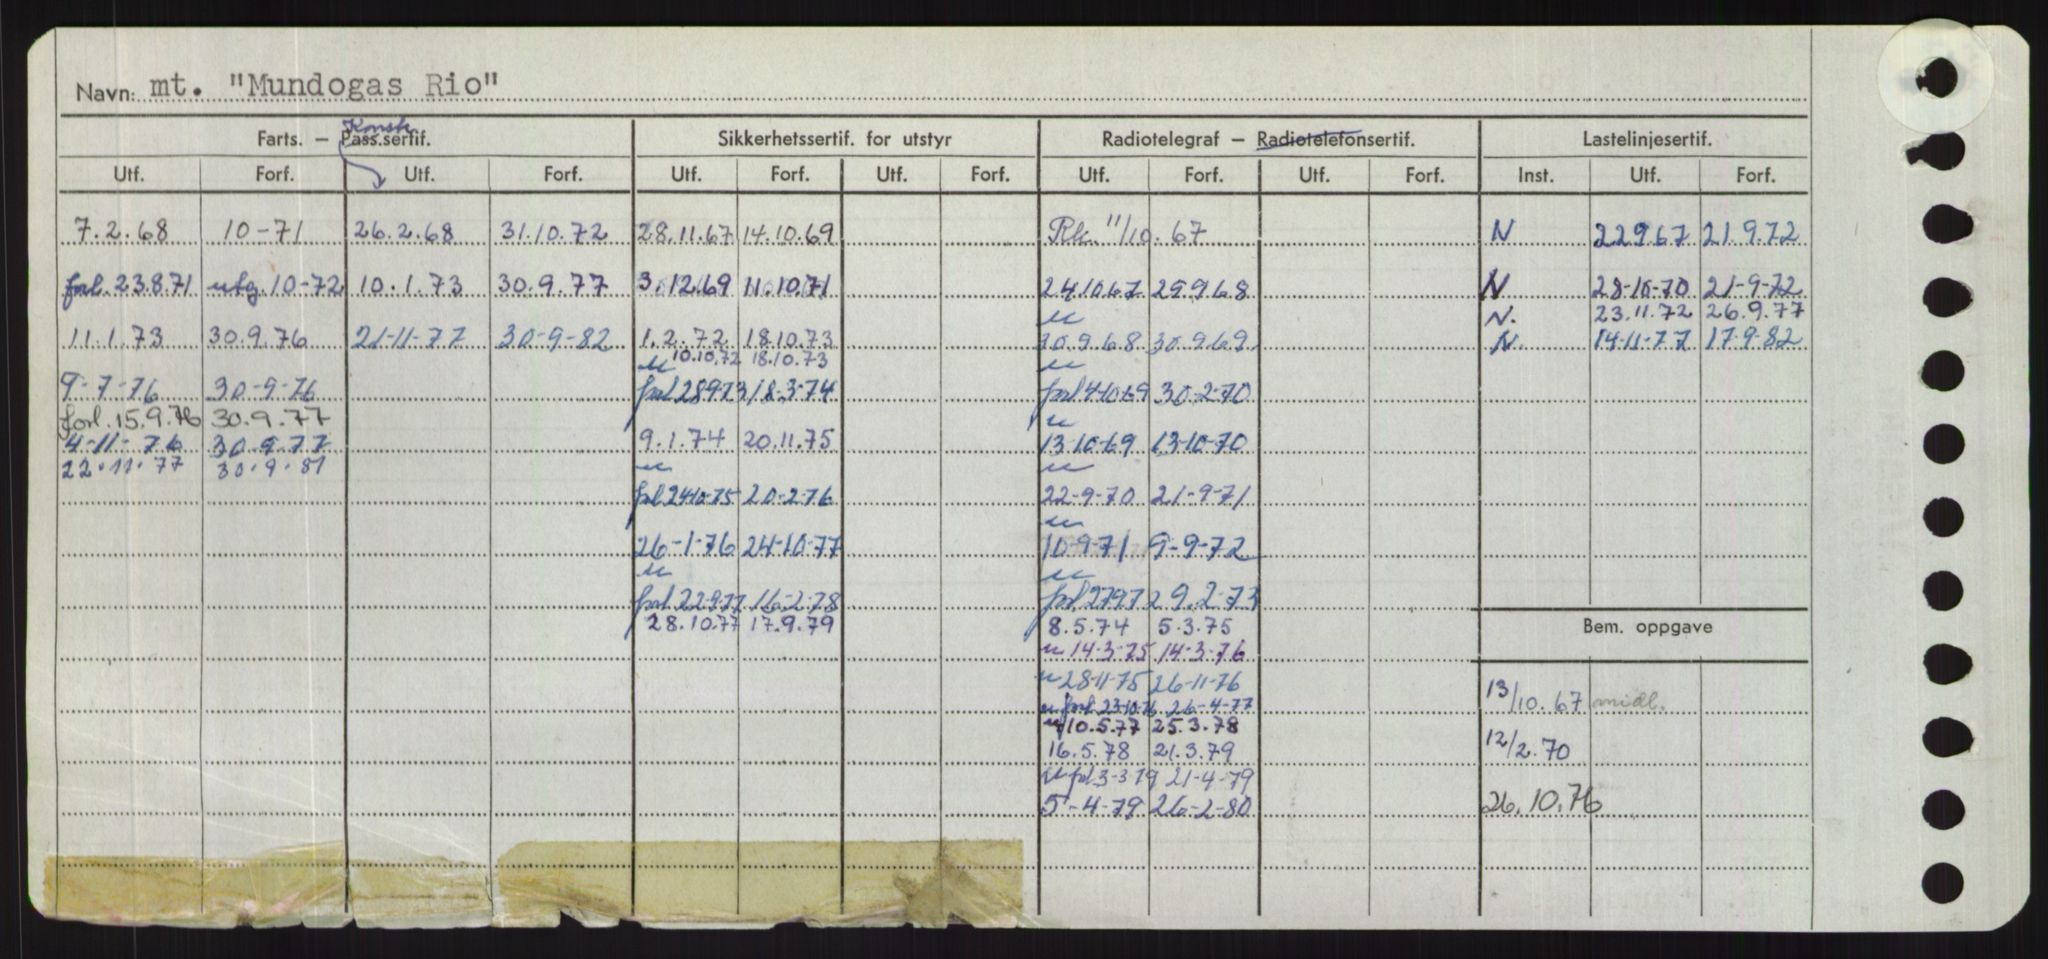 Navn: mt. "Mundogas Rio"
Konstr
Farts. — Pass.sertif. Sikkerhetssertif. for utstyr Radiotelegraf — Radiotelefonsertif. Lastelinjesertif.
Utf. Forf. Utf. Forf. Utf. Forf. Utf. Forf. Utf. Forf. Utf. Forf. Inst. Utf. Forf.
7.2.68 10-71 26.2.68 31.10.72 28.11.67 14.10.69 11/10.67 N 22967 21.9.72
forl. 23.8.71 utg. 10-72 10.1.73 30.9.77 3.12.69 11.10.71 241067 29968 N 28-10-70 21-9-72
u N. 23.11.72 26.9.77
11.1.73 30.9.76 21-11-77 30-9-82 1.2.72 18.10.73 30.9.68 30.9.69 N. 14-11-77 17-9-82
u 10.10.72 18.10.73 u
9-7-76 30-9-76 forl 28973 18.3-74 forl 41069 30-2-70
forl. 15.9.76 30.9.77 u
4-11-76 30.9.77 9.1.74 20.11.75 13-10-69 13-10-70
22.11.77 30.9.81 u u
forl 2410-75 20-2-76 22-9-70 21-9-71
u
26-1-76 24-10-77 10-9-71 9-9-72
u u
forl 22977 16-2-78 forl 27972 9.2-73
28.10.77 17.9.79 8.5.74 5.3.75 Bem. oppgave
u 14-3-75 14-3-76
u 28-11-75 26-11-76 13/10.67 midl.
u forl 23-10-76 26-4-77
u 10.5.77 25.3.78
16.5.78 21.3.79 12/2.70
u forl 3-3-79 21-4-79
5-4-79 26-2-80 26.10.76